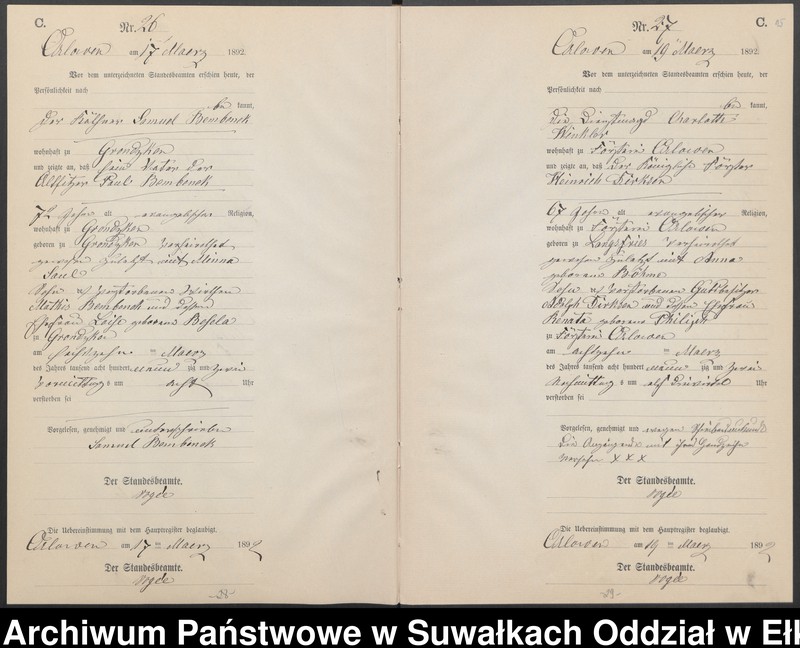 C.
Nr. 26
Orlowen am 17 Maerz 1892.
Vor dem unterzeichneten Standesbeamten erschien heute, der
Persönlichkeit nach
be kannt,
der Käthner Samuel Bembenek
wohnhaft zu Grondzken
und zeigte an, daß sein Vater der
Altsitzer Paul Bembenek
Jahre alt evangelischer Religion,
wohnhaft zu Grondzken
geboren zu Grondzken verheirathet
gewesen zuletzt mit Minna
Saul
Sohn des verstorbenen
Mathis Bembenek und dessen
Ehefrau Loise geborene
zu Grondzken
am sechszehn ten Maerz
des Jahres tausend acht hundert neun zig und zwei
Vormittags um acht Uhr
verstorben sei
Vorgelesen, genehmigt und unterschrieben
Samuel Bembenek
Der Standesbeamte.
Die Uebereinstimmung mit dem Hauptregister beglaubigt.
Orlowen am 17 ten Maerz 1892
Der Standesbeamte.
-28-
C.
Nr. 27
Orlowen am 19 Maerz 1892
Vor dem unterzeichneten Standesbeamten erschien heute, der
Persönlichkeit nach
be kannt,
die Dienstmagd Charlotte
Winkler
wohnhaft zu Försterei Orlowen
und zeigte an, daß der Königliche Förster
Heinrich Dirksen
67 Jahre alt evangelischer Religion,
wohnhaft zu Försterei Orlowen
geboren zu verheirathet
gewesen zuletzt mit Anna
geborene Böhme
Sohn des verstorbenen Gutsbesitzer
Adolph Dirksen und dessen Ehefrau
Renata geborene
zu Försterei Orlowen
am achtzehn ten Maerz
des Jahres tausend acht hundert neun zig und zwei
Nachmittags um elf Uhr
verstorben sei
Vorgelesen, genehmigt und wegen
die Anzeigende mit ihrem Handzeichen
versehen X X X
Der Standesbeamte.
Die Uebereinstimmung mit dem Hauptregister beglaubigt.
Orlowen am 19 ten Maerz 1892
Der Standesbeamte.
-29-
Archiwum Państwowe w Suwałkach Oddział w Ełk